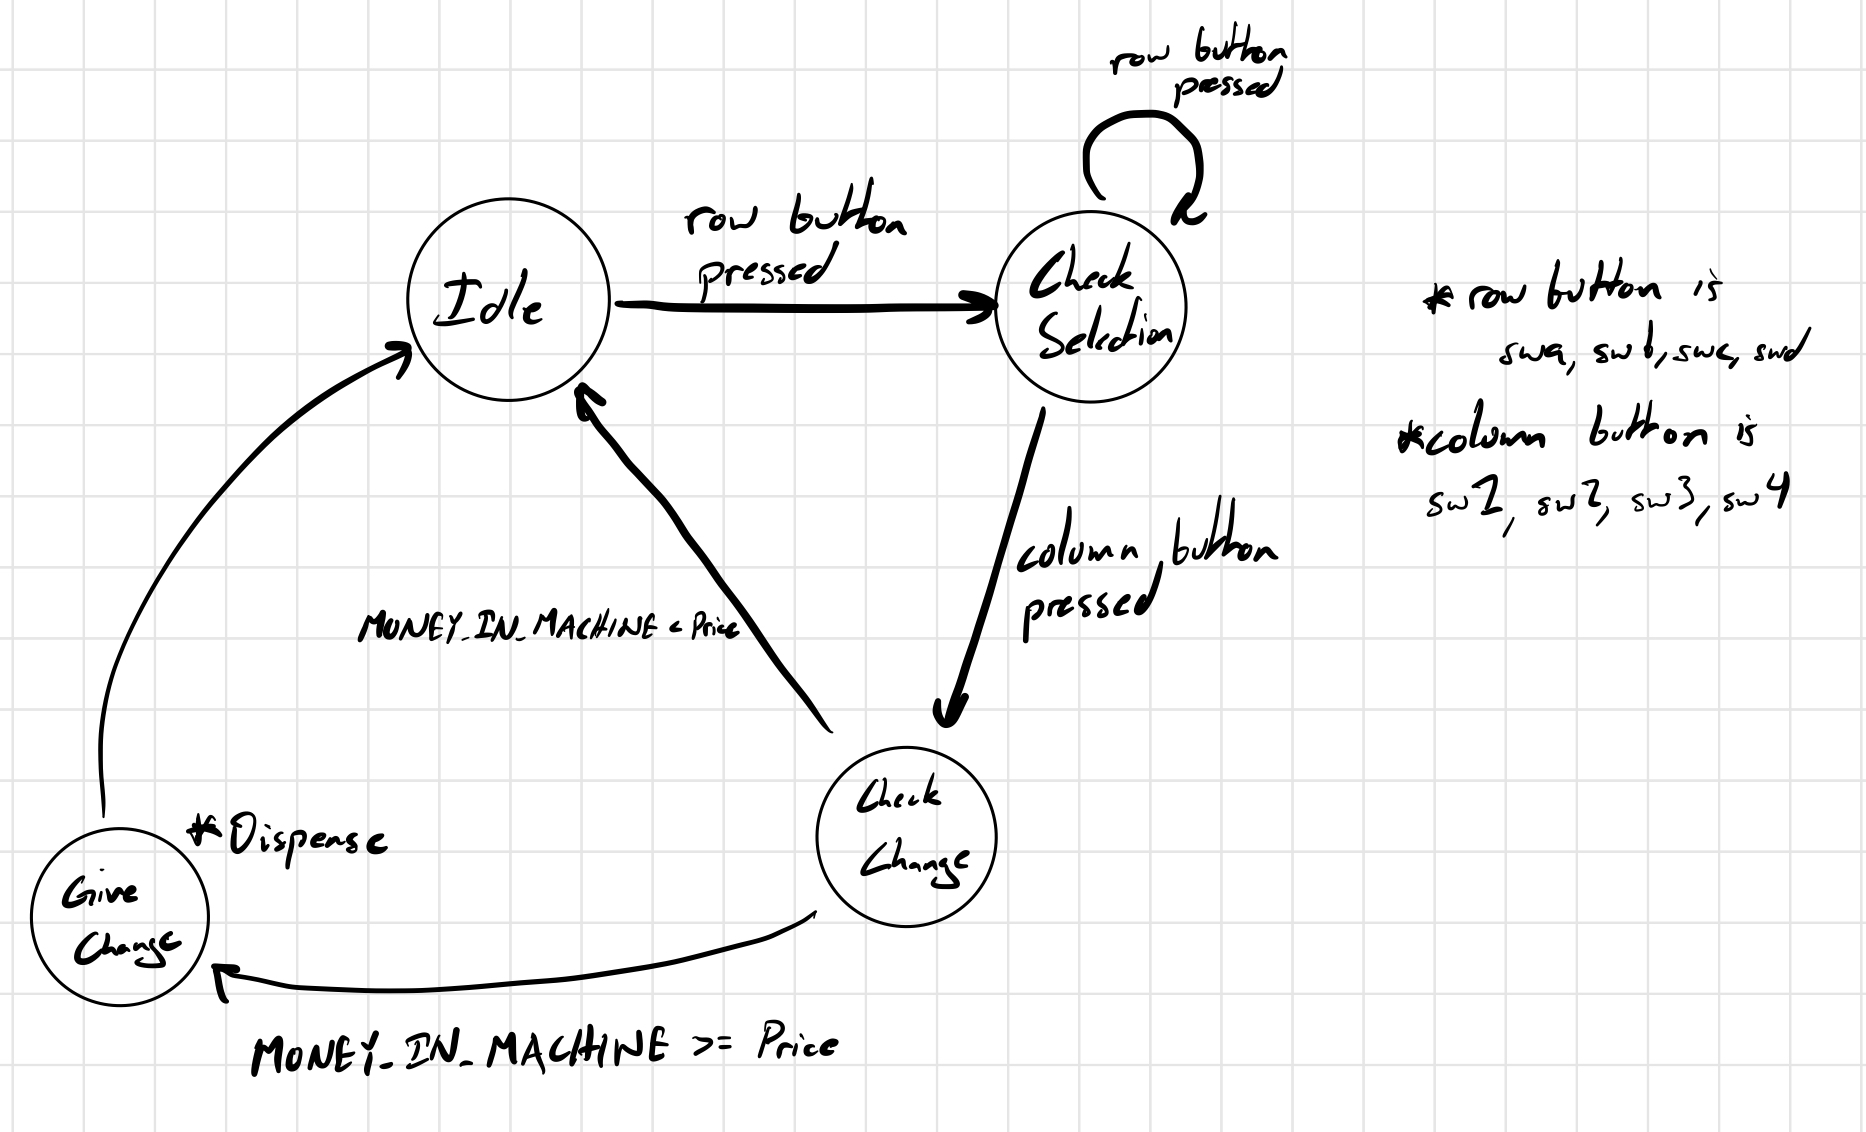 row button
pressed
row button
pressed
Idle
Check
Selection
* row button is
swa, swb, swc, swd
*column button is
sw1, sw2, sw3, sw4
column button
pressed
MONEY_IN_MACHINE < Price
Check
Change
* Dispense
Give
Change
MONEY_IN_MACHINE >= Price